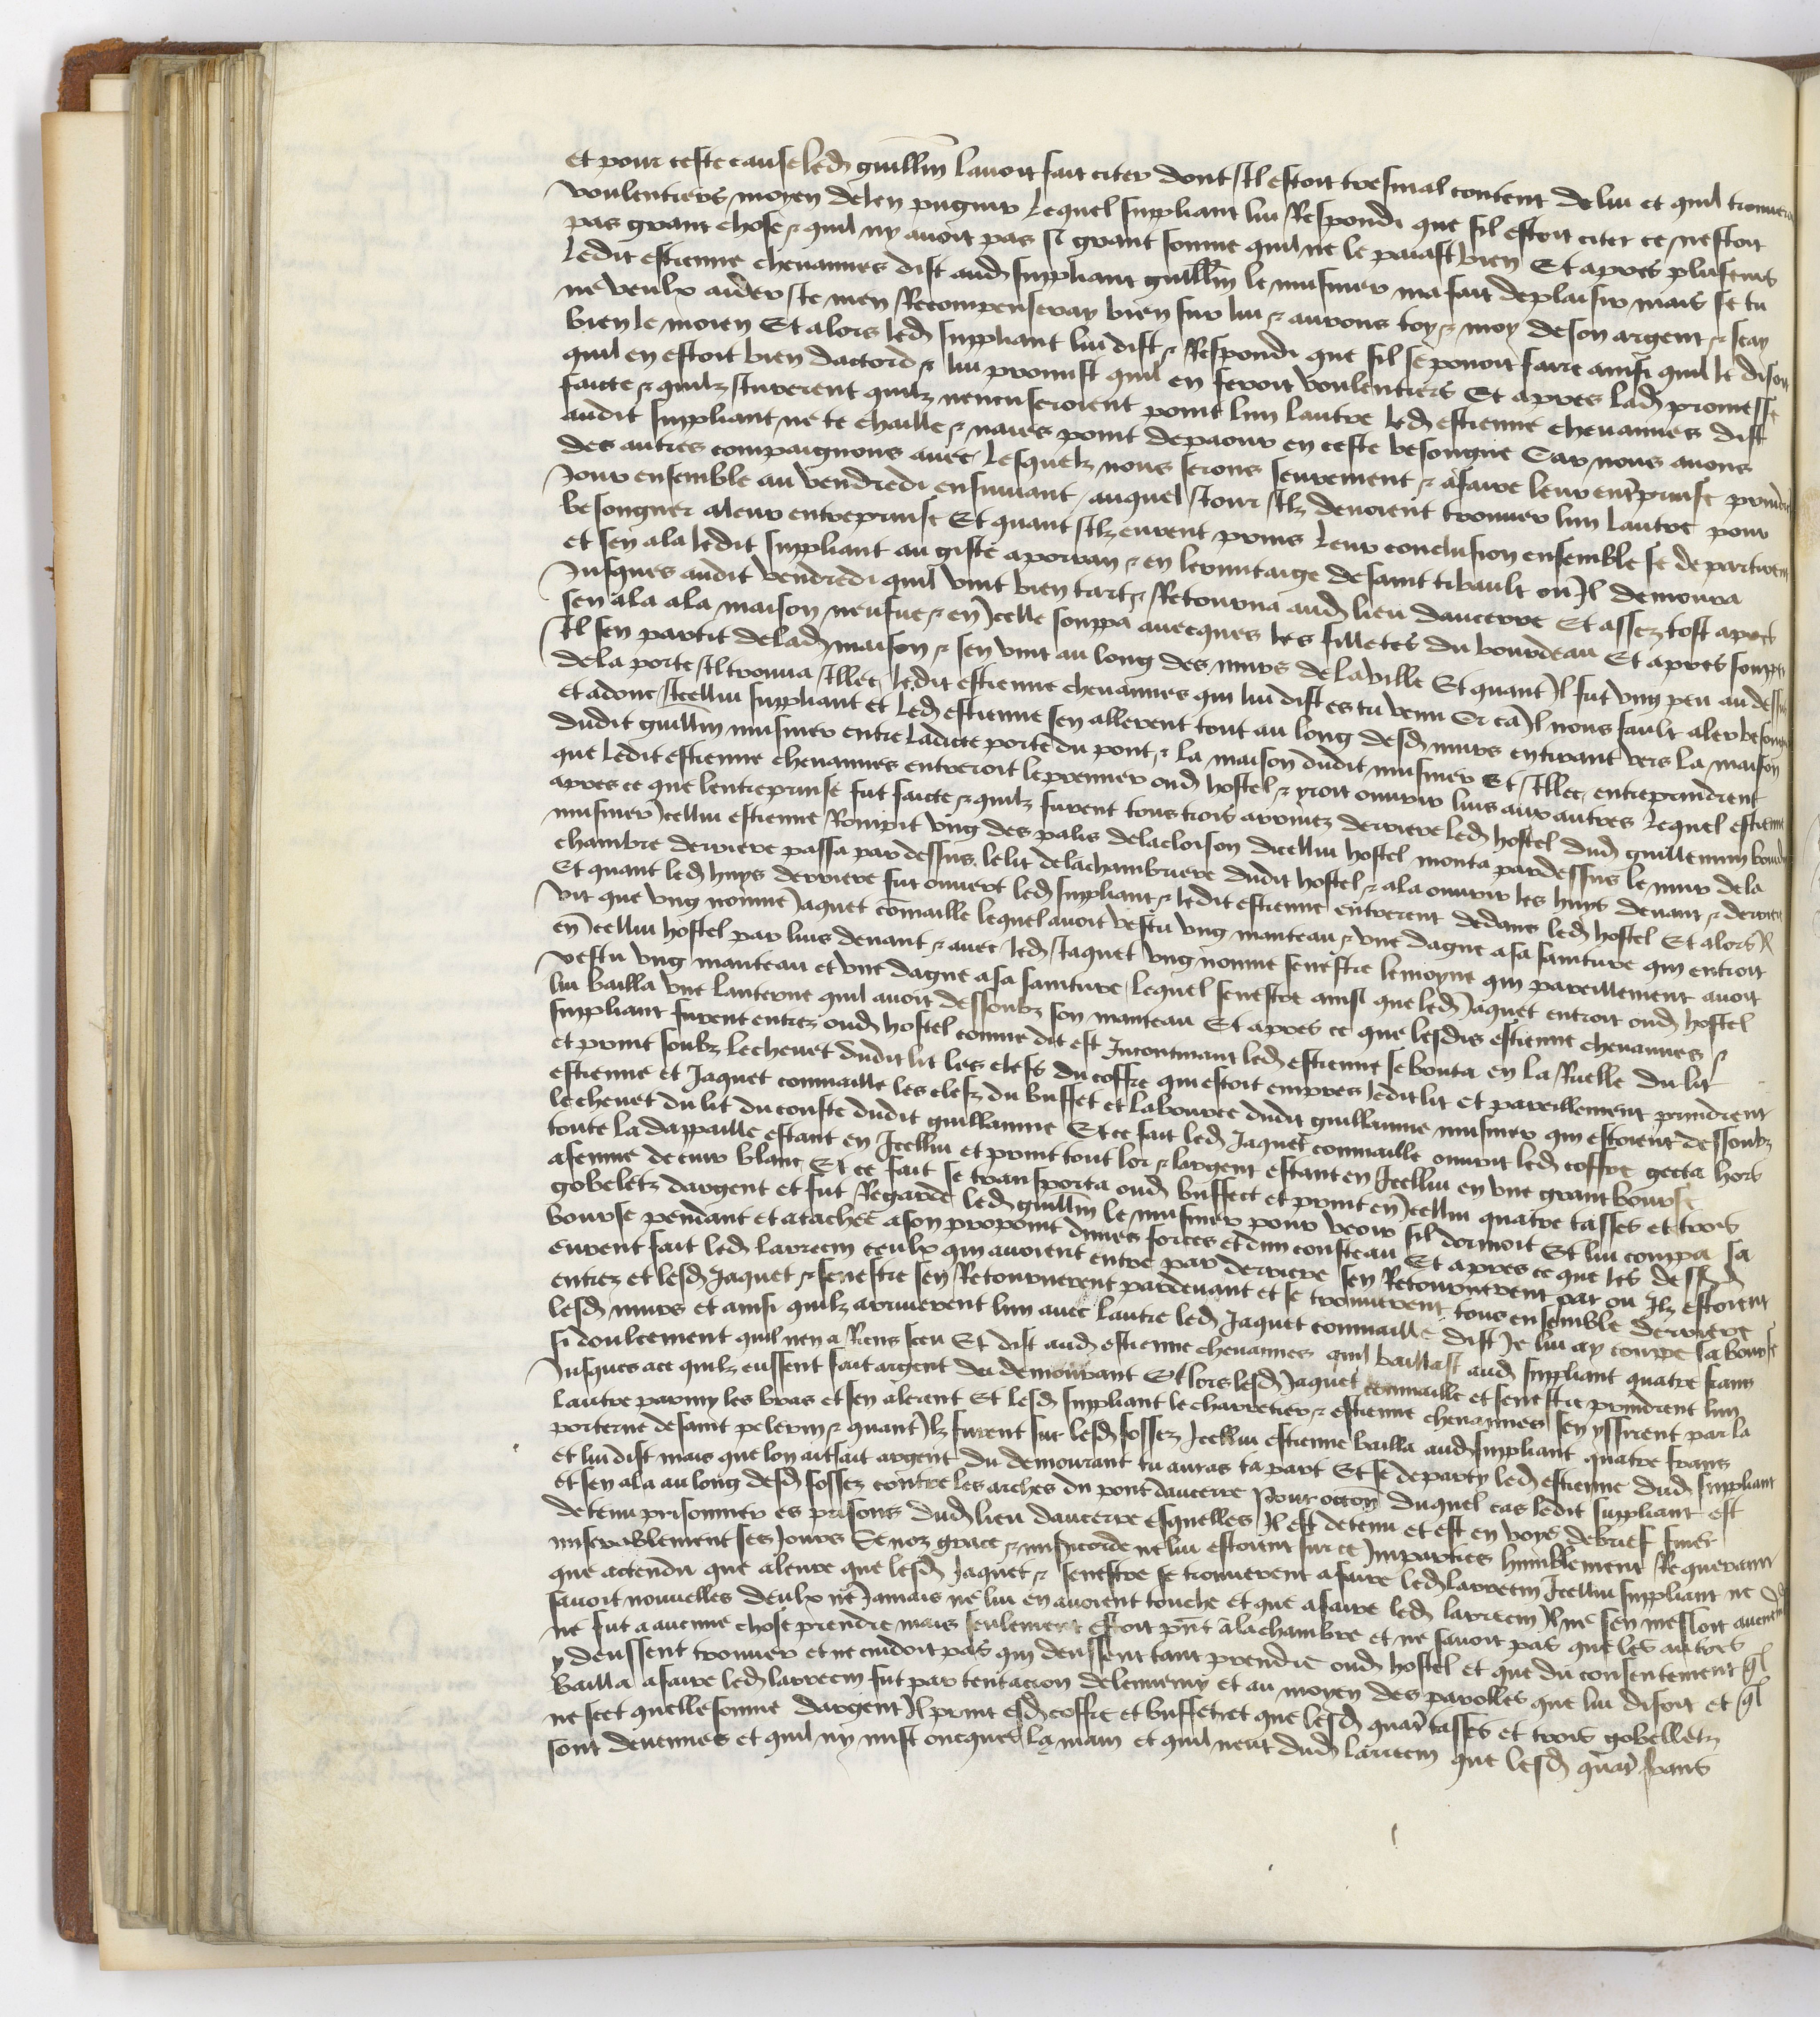 et pour ceste cause led guillm lavoit fait citer dont il estoit tresmal content de lui et quil trouvera
voulentiers moyen de len pugnir Lequel suppliant lui Respondi que sil estoit citer ce nestoit
pas grant chose & quil ny avoit pas si grant somme quil ne le paiast bien Et apres plusieurs
Ledit estienne chevannes dist aud suppliant guillm le musnier ma fait deplaisir mais se tu
me veulx aider Je men Recompenseray bien sur lui & aurons toy & moy de son argent & scay
bien le moien Et alors led suppliant lui dist & Respondi que sil se povoit faire ainsi quil le disoit
quil en estoit bien dacord & lui promist quil en feroit voulentiers Et apres lad promesse
faicte & quilz Jurerent quilz nencuseroient point lun lautre led estienne chevannes dist
audit suppliant ne te chaille & naies point de paour en ceste besongne Car nous avons
des autres compaignons avec Lesquelz nous serons seurement & a faire leur entprinse prindrent
Jour ensemble au vendredi ensuivant auquel Jour Ilz devoient trouver lun lautre pour
besongner a leur entreprinse Et quant Ilz eurent prins leur conclusion ensemble se departirent
et sen ala ledit suppliant au giste a porran & en lermitaige de saint tibault ou Il demoura
Jusques audit vendredi quil vint bien tart & Retourna aud lieu daucerre Et assez tost apres
sen ala a la maison neufue & en Icelle souppa avecques les filletes du bourdeau Et apres soupper
Il sen partit de lad maison & sen vint au long des murs de la ville Et quant Il fut ung peu au dessus
de la porte Il trouva Illec ledit estienne chevannes qui lui dist es tu venu Or ca Il nous fault aler besongner
et adonc Icellui suppliant et led estienne sen allerent tout au long desd murs en tirant vers la maison
dudit guillm musnier entre ladicte porte du pont & la maison dudit musnier Et Illec entreprindrent
que ledit estienne chevannes entreroit le premier oud hostel & yroit ouvrir luis aux autres Lequel estienne
apres ce que lentreprinse fut faicte & quilz furent tous trois arrivez derriere led hostel dud guillemin
musnier Icellui estienne Rompit ung des palis de la cloison dicellui hostel monta par dessus le mur de la
chambre derriere passa par dessus le lit de la chambriere dudit hostel & ala ouvrir les huys devant & derriere
Et quant led huys derriere fut ouvert led suppliant & ledit estienne entrerent dedans led hostel Et alors Il
vit que ung nomme Jaquet cõmaille lequel avoit vestu ung manteau & une dague a sa sainture qui entroit
en Icellui hostel par luis devant & avec led Jaquet ung nomme senestre lemoyne qui pareillement avoit
vestu ung manteau et une dague a sa sainture lequel senestre ainsi que led Jaquet entroit oud hostel
lui bailla une lanterne quil avoit dessoubz son manteau Et apres ce que lesdis estienne chevannes &
suppliant furent entrez oud hostel comme dit est Incontinant led estienne se bouta en la Ruelle du lit
et print soubz le chevet dudit lit les clefs du coffre qui estoit empres ledit lit et pareillement prindrent
estienne et Jaquet commaille les clefz du buffet et la bource dudit guillaume musnier qui estoient dessoubz
le chevet du lit du couste dudit guillaume Et ce fait led Jaquet commaille ouvrit led coffre gecta hors
toute la dappaille estant en Icellui et print tout lor & largent estant en Icellui en une grant bourse
a femme de cuir blanc Et ce fait se transporta oud buffect et print en Icellui quatre tasses et trois
gobeletz dargent et fut Regarde led guillm le musnier pour veoir sil dormoit Et lui couppa sa
bourse pendant et atachee a son propoint dunes forces et dun cousteau Et apres ce que les dessusd
eurent fait led larrecin ceulx qui avoient entre par derriere sen Retournerent par ou Ilz estoient
entrez et lesd Jaquet & senestre sen Retournerent par devant et se trouverent tous ensemble derriere
lesd murs et ainsi quilz arriverent lun avec lautre led Jaquet commaille dist Je lui ay coupe sa bourse
si doulcement quil nen a Riens sceu Et dist aud estienne chevannes quil baillast aud suppliant quatre frans
Jusques a ce quilz eussent fait argent du demourant Et lors lesd Jaquet commaille et senestre prindrent lun
lautre parmy les bras et sen alerent Et lesd suppliant le charretier & estienne chevannes sen yssirent par la
porterne de saint pelerin & quant Ilz furent sur lesd fossez Icellui estienne bailla aud suppliant quatre frans
et lui dist mais que lon ait fait argent du demourant tu auras ta part Et se departy led estienne dud suppliant
et sen ala au long desd fossez contre les arches du pont daucerre Pour occõn duquel cas ledit suppliant est
detenu prisonnier es prisons dud lieu daucerre esquelles Il est detenu et est en voye de brief finer
miserablement ses Jours Se noz grace & misicorde ne lui estoient sur ce Imparties humblement Requerant
que actendu que aleure que lesd Jaquet & senestre se trouverent a faire led larrecin Icellui suppliant ne
savoit nouvelles deulx ne Jamais ne lui en avoient touche et que a faire led larrecin Il ne sen mesloit
ne fut a aucune chose prendre mais seulement estoit pnt a la chambre et ne savoit pas que les autres
y deussent trouver et ne cuidoit pas quilz deussent tant prendre oud hostel et que du consentement ql
bailla a faire led larrecin fut par tentacion de lennemy et au moyen des parolles que lui disoit et ql
ne scet quelle somme dargent Il print esd coffre et buffet et que lesd quatr tasses et trois gobelletz
sont devenues et quil ny mist oncques la main et quil neut dud larrecin que lesd quatr frans